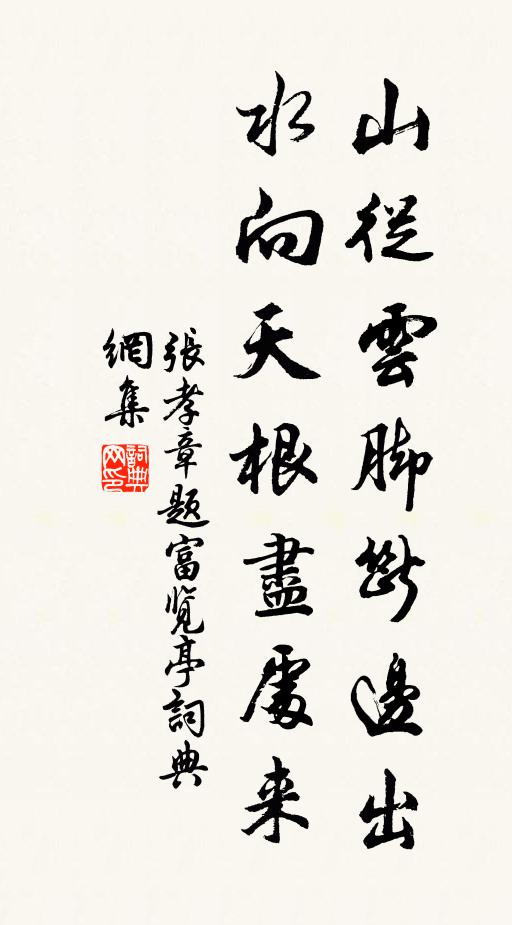 山從雲脚斷邊出
水向天根盡處来
張孝章題富覽亭詞典
網集
詞典
网印